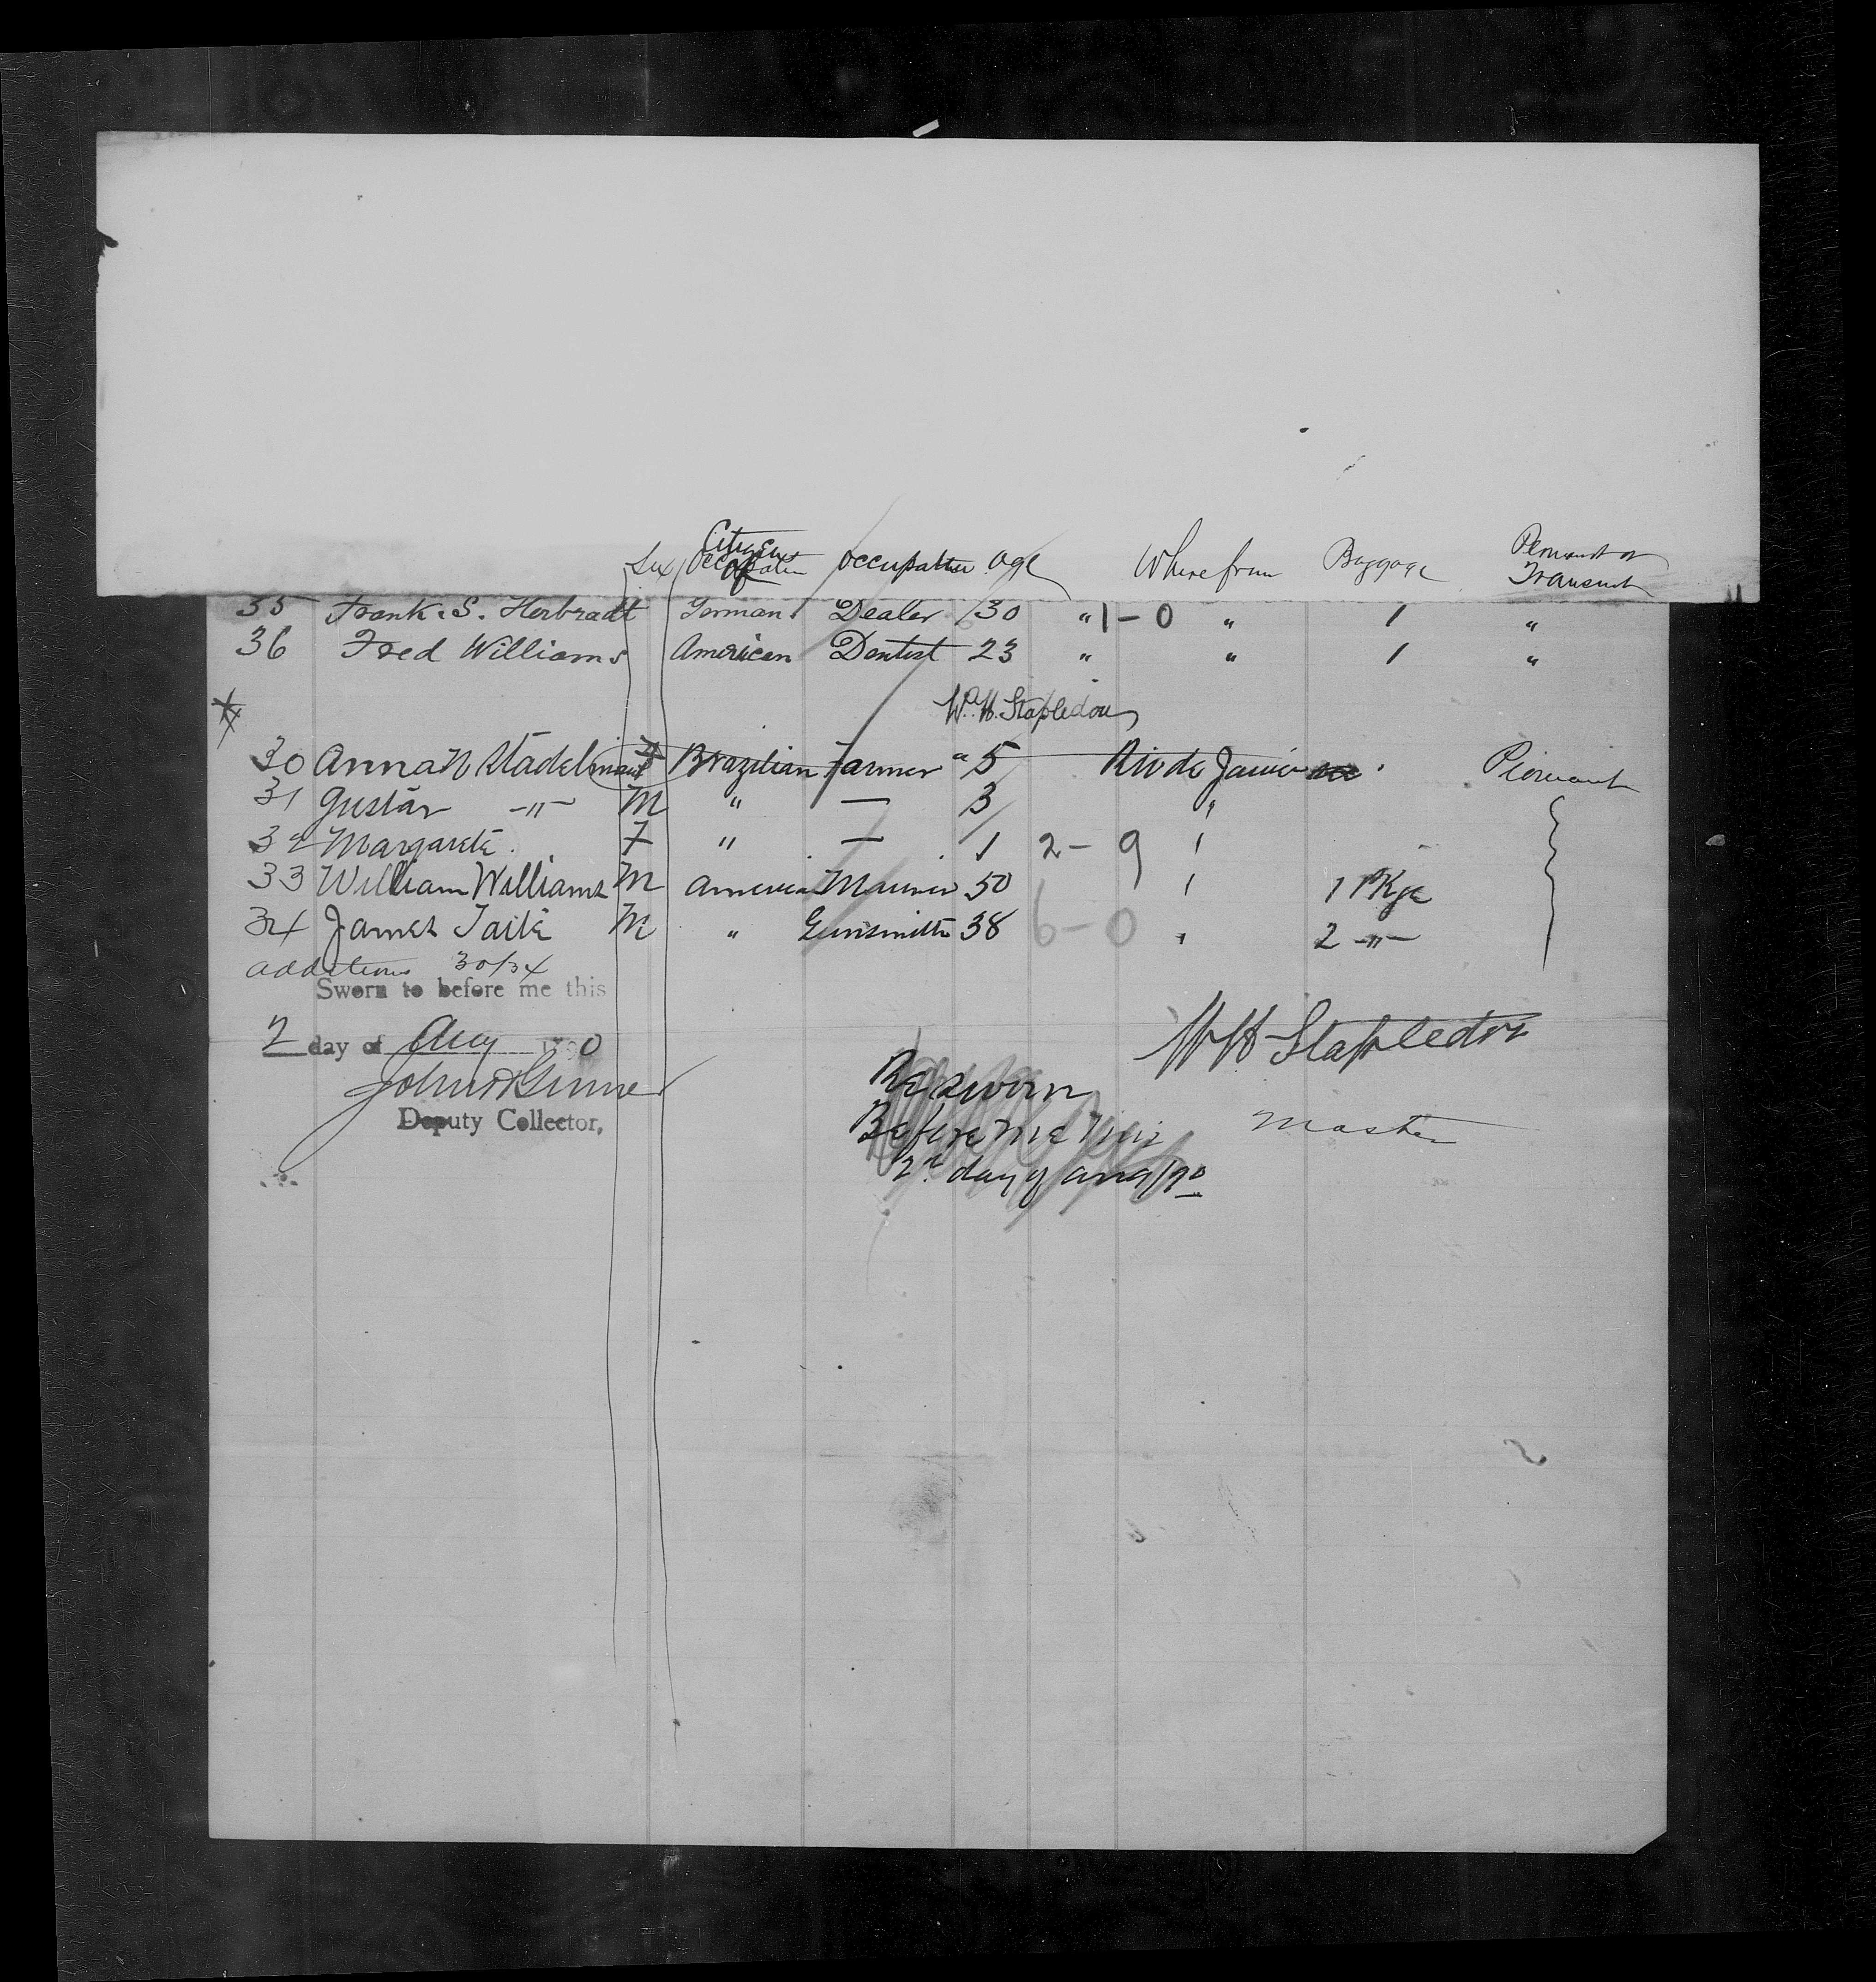 Sex Citizen of Occupation Age Where from Baggage Permanent or Transient
35 Frank. S. Herbradt German Dealer 30 " 1-0 " 1 "
36 Fred Williams American Dentist 23 " " 1 "
Wm. H. Stapledon
30 Anna N Stadelmann F Brazilian Farmer " 5 Rio de Janeiro
31 Gustav -"- M " — 3 "
32 Margarete F " — 1 2-9 "
33 William Williams M America 50 " 1 Pkge
34 James Taite M " Gunsmith 38 6-0 " 2 -"-
additions 30/34
Sworn to before me this
2 day of Aug 1890
Deputy Collector,
W H Stapledon
Master
Resworn
Before me this
2nd day of aug/90